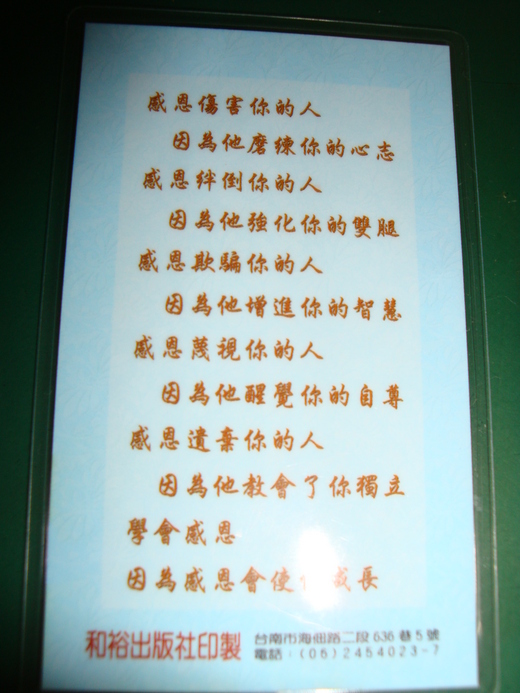 感恩傷害你的人
因為他磨練你的心志
感恩絆倒你的人
因為他強化你的雙腿
感恩欺騙你的人
因為他增進你的智慧
感恩蔑視你的人
因為他醒覺你的自尊
感恩遺棄你的人
因為他教會了你獨立
學會感恩
因為感恩會使你成長
和裕出版社印製
台南市海佃路二段636巷5號
電話:(06)2454023-7